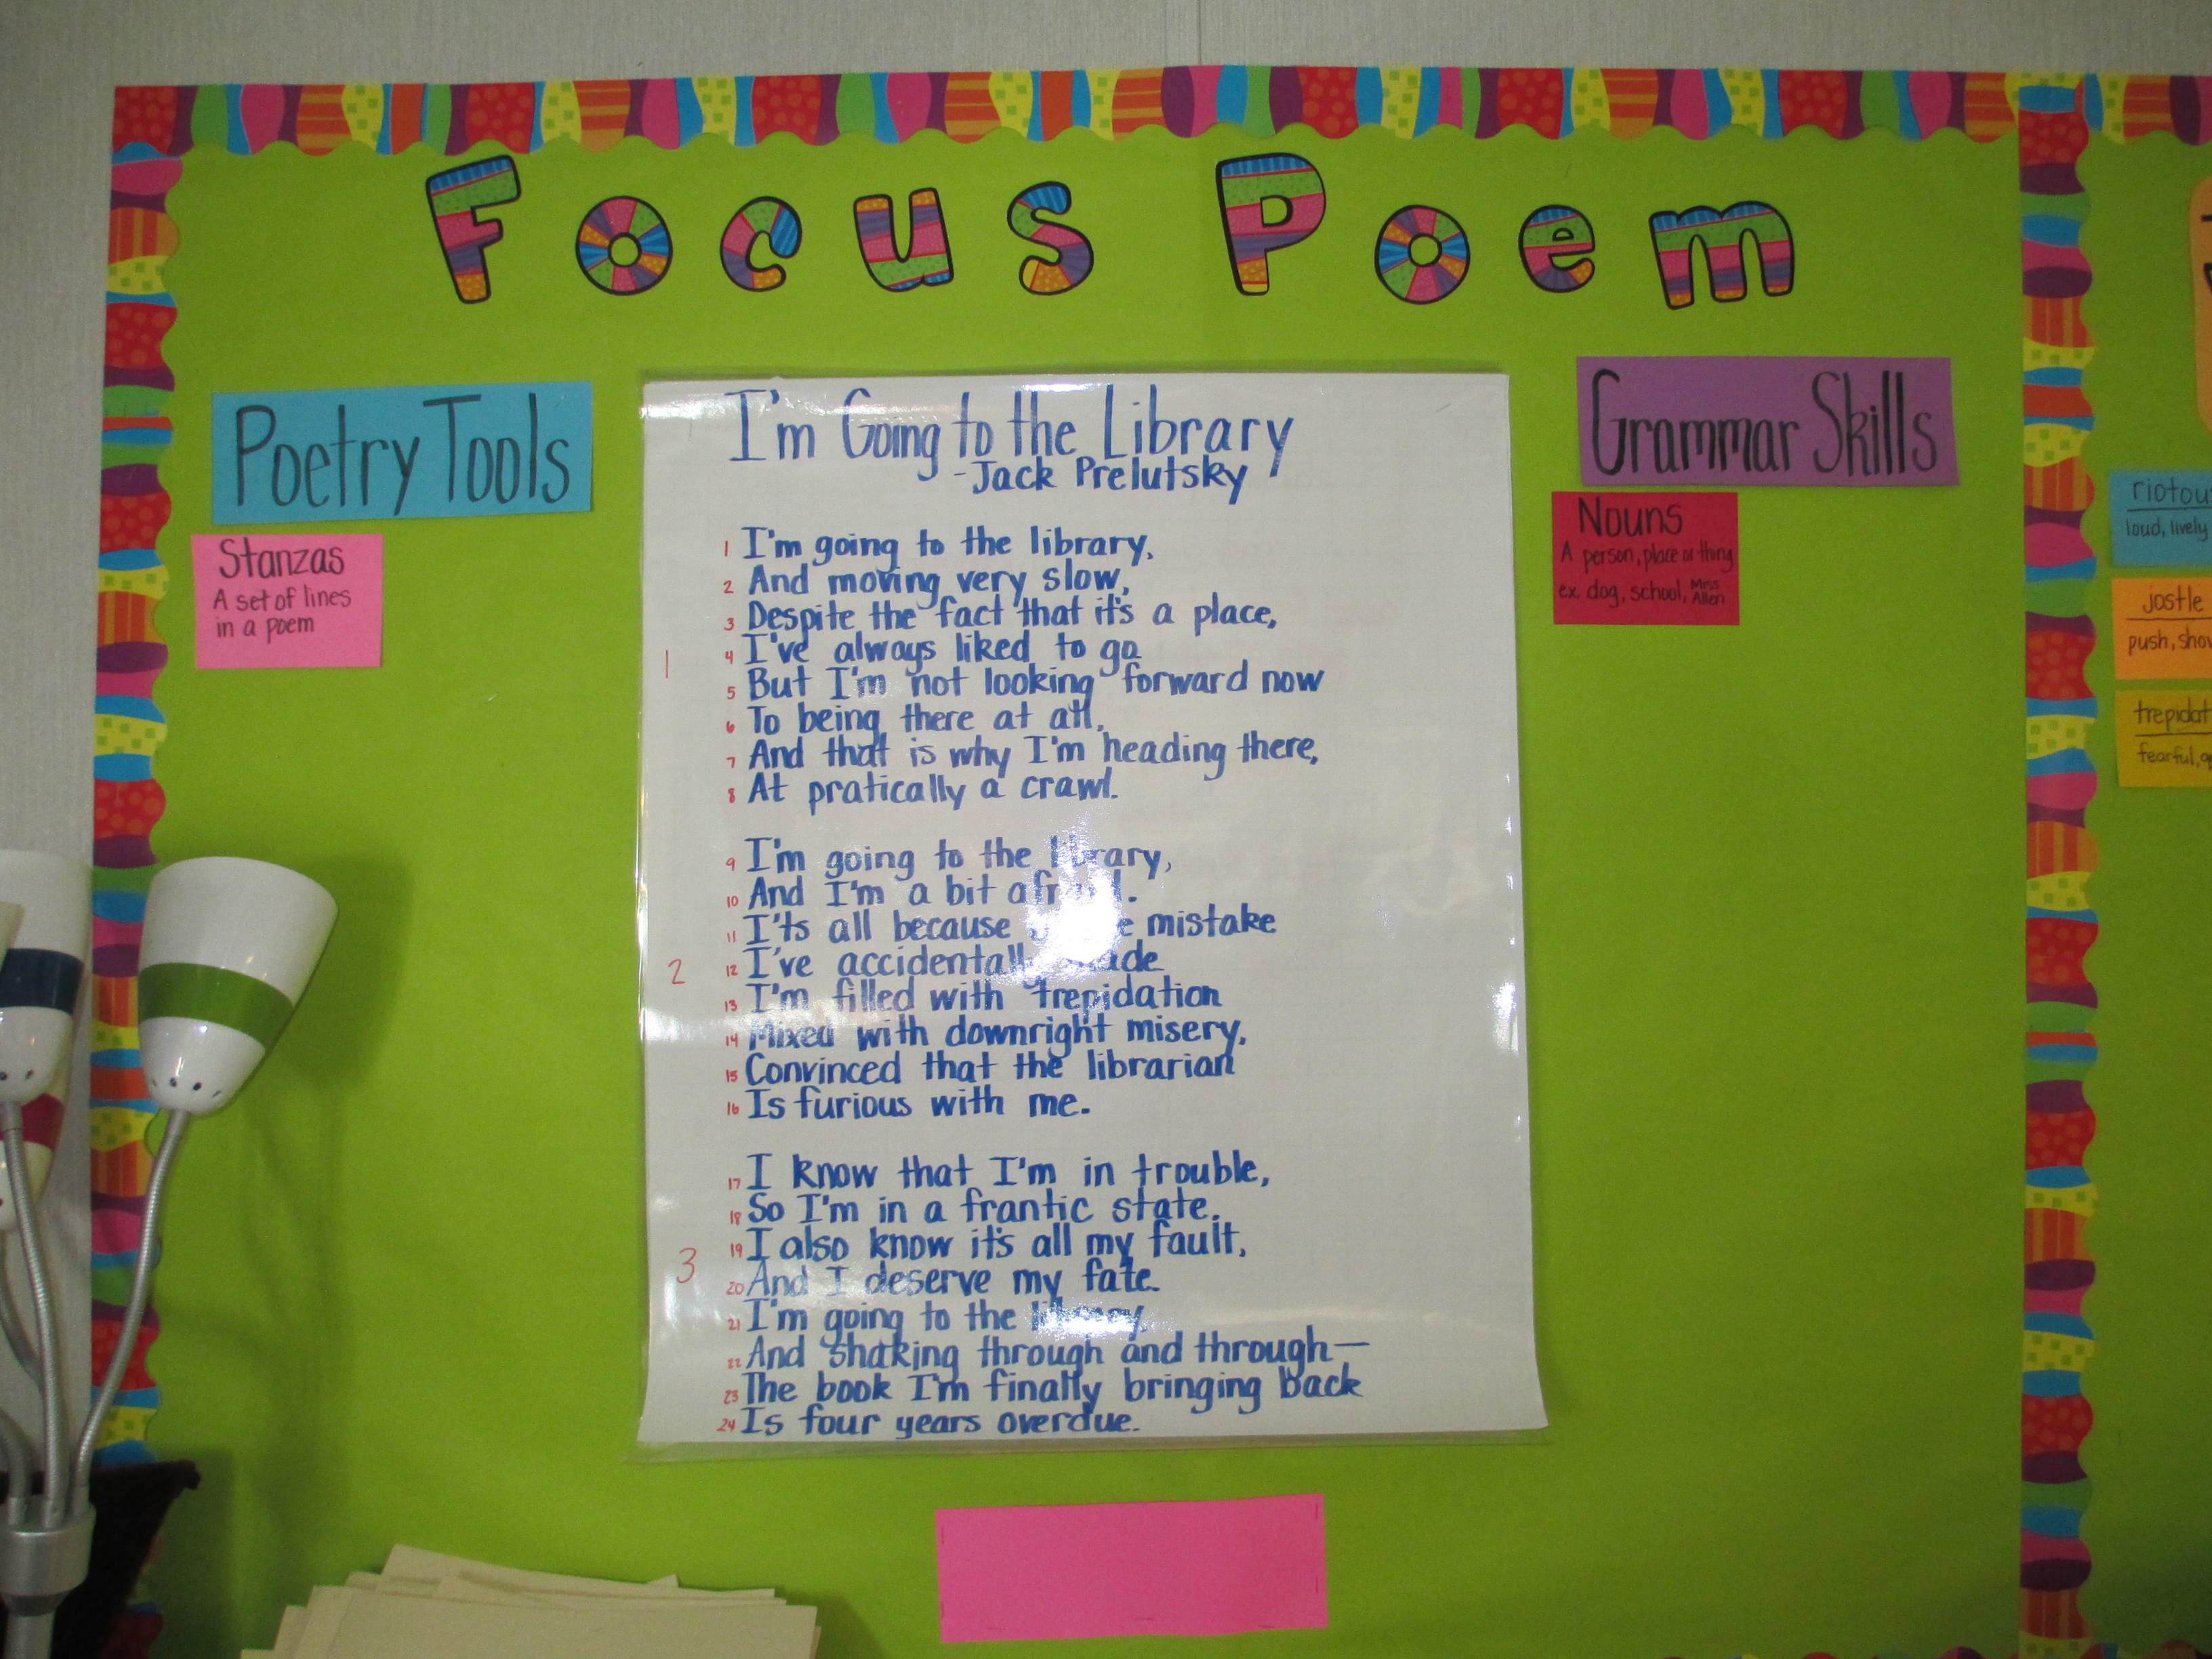 Focus Poem
Poetry Tools
Stanzas
A set of lines
in a poem
I'm Going to the Library
-Jack Prelutsky
1 I'm going to the library,
2 And moving very slow,
3 Despite the fact that it's a place,
1
4 I've always liked to go
5 But I'm not looking forward now
6 To being there at all,
7 And that is why I'm heading there,
8 At pratically a crawl.
9 I'm going to the library,
10 And I'm a bit afraid.
11 I'ts all because mistake
2
12 I've accidentally made
13 I'm filled with trepidation
14 Mixed with downright misery,
15 Convinced that the librarian
16 Is furious with me.
17 I know that I'm in trouble,
18 So I'm in a frantic state.
19 I also know it's all my fault,
3
20 And I deserve my fate.
21 I'm going to the library,
22 And shaking through and through—
23 The book I'm finally bringing back
24 Is four years overdue.
Grammar Skills
Nouns
A person, place or thing
ex. dog, school, Miss
Allen
loud, lively
jostle
push,
fearful,